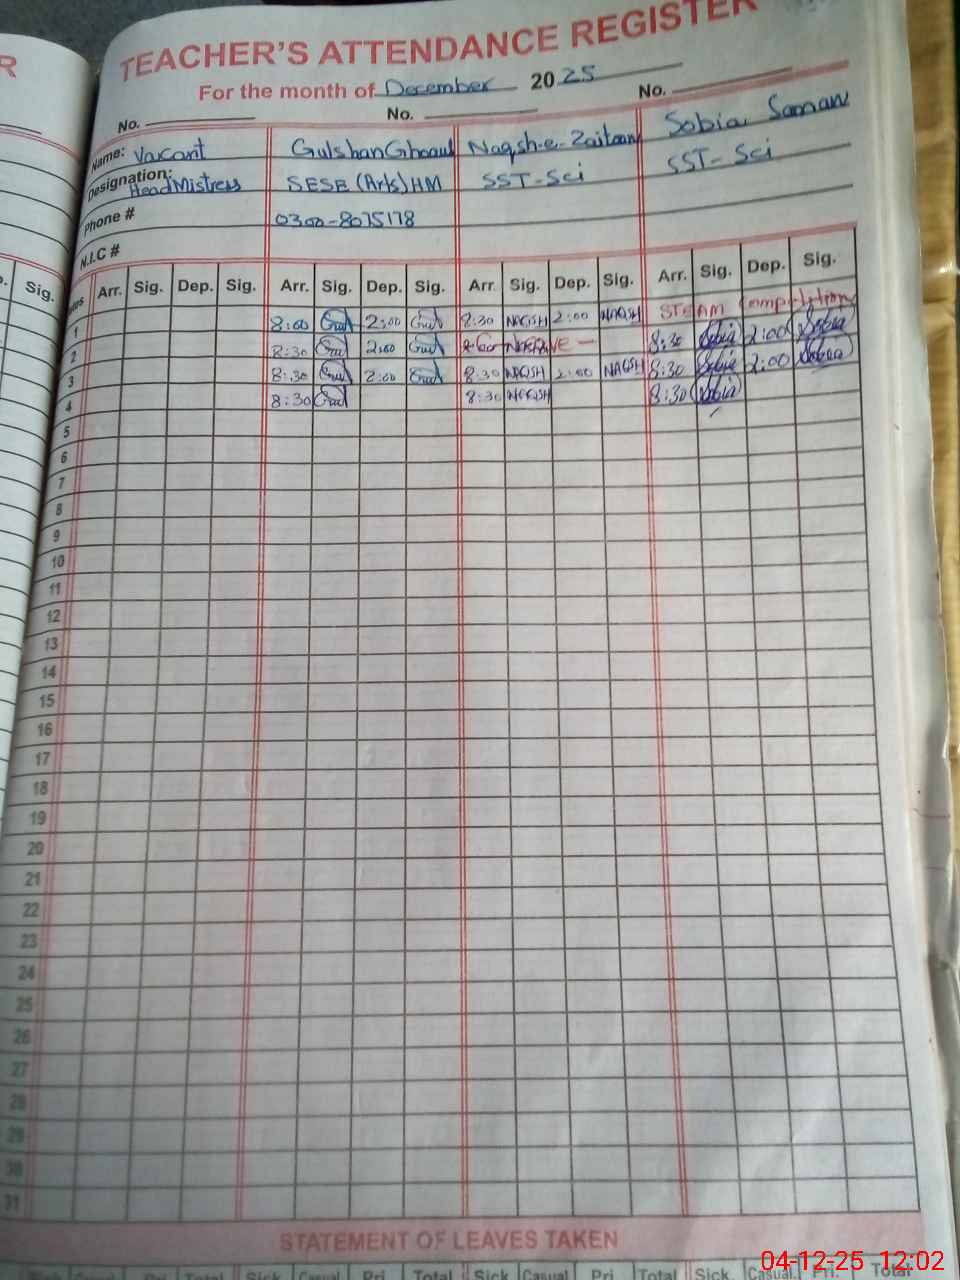 R
TEACHER'S ATTENDANCE REGISTER
For the month of December 2025
No. No. No.
Name: Vacant Gulshan Naqsh-e-Zaitoon Sobia Saman
Designation: HeadMistress SESE (Arts) HM SST-Sci SST-Sci
Phone # 0300-8075178
N.I.C #
Sig. Arr. Sig. Dep. Sig. Arr. Sig. Dep. Sig. Arr. Sig. Dep. Sig. Arr. Sig. Dep. Sig.
1 8:00 Gul 2:00 Gul 8:30 NAQSH 2:00 NAQSH STEAM Competition
2 8:30 Gul 2:00 Gul 8:30 Sobia 2:00 Sobia
3 8:30 Gul 2:00 Gul 8:30 NAQSH 2:00 NAQSH 8:30 Sobia 2:00 Sobia
4 8:30 Gul 8:30 NAQSH 8:30 Sobia
5
6
7
8
9
10
11
12
13
14
15
16
17
18
19
20
21
22
23
24
25
26
27
28
29
30
31
STATEMENT OF LEAVES TAKEN
Sick Casual Pri. Total Sick Casual Pri. Total Sick Casual Pri. Total
04-12-25 12:02